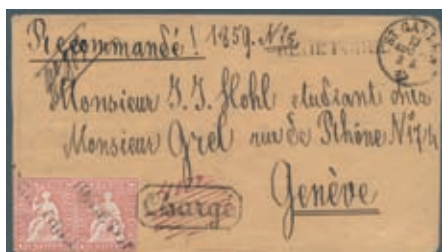 Recommandé ! 1859. No
ST. GALLEN
Monsieur J. J. Hohl etudiant chez
Monsieur Grel rue de Rhône No 174
Genève
Chargé